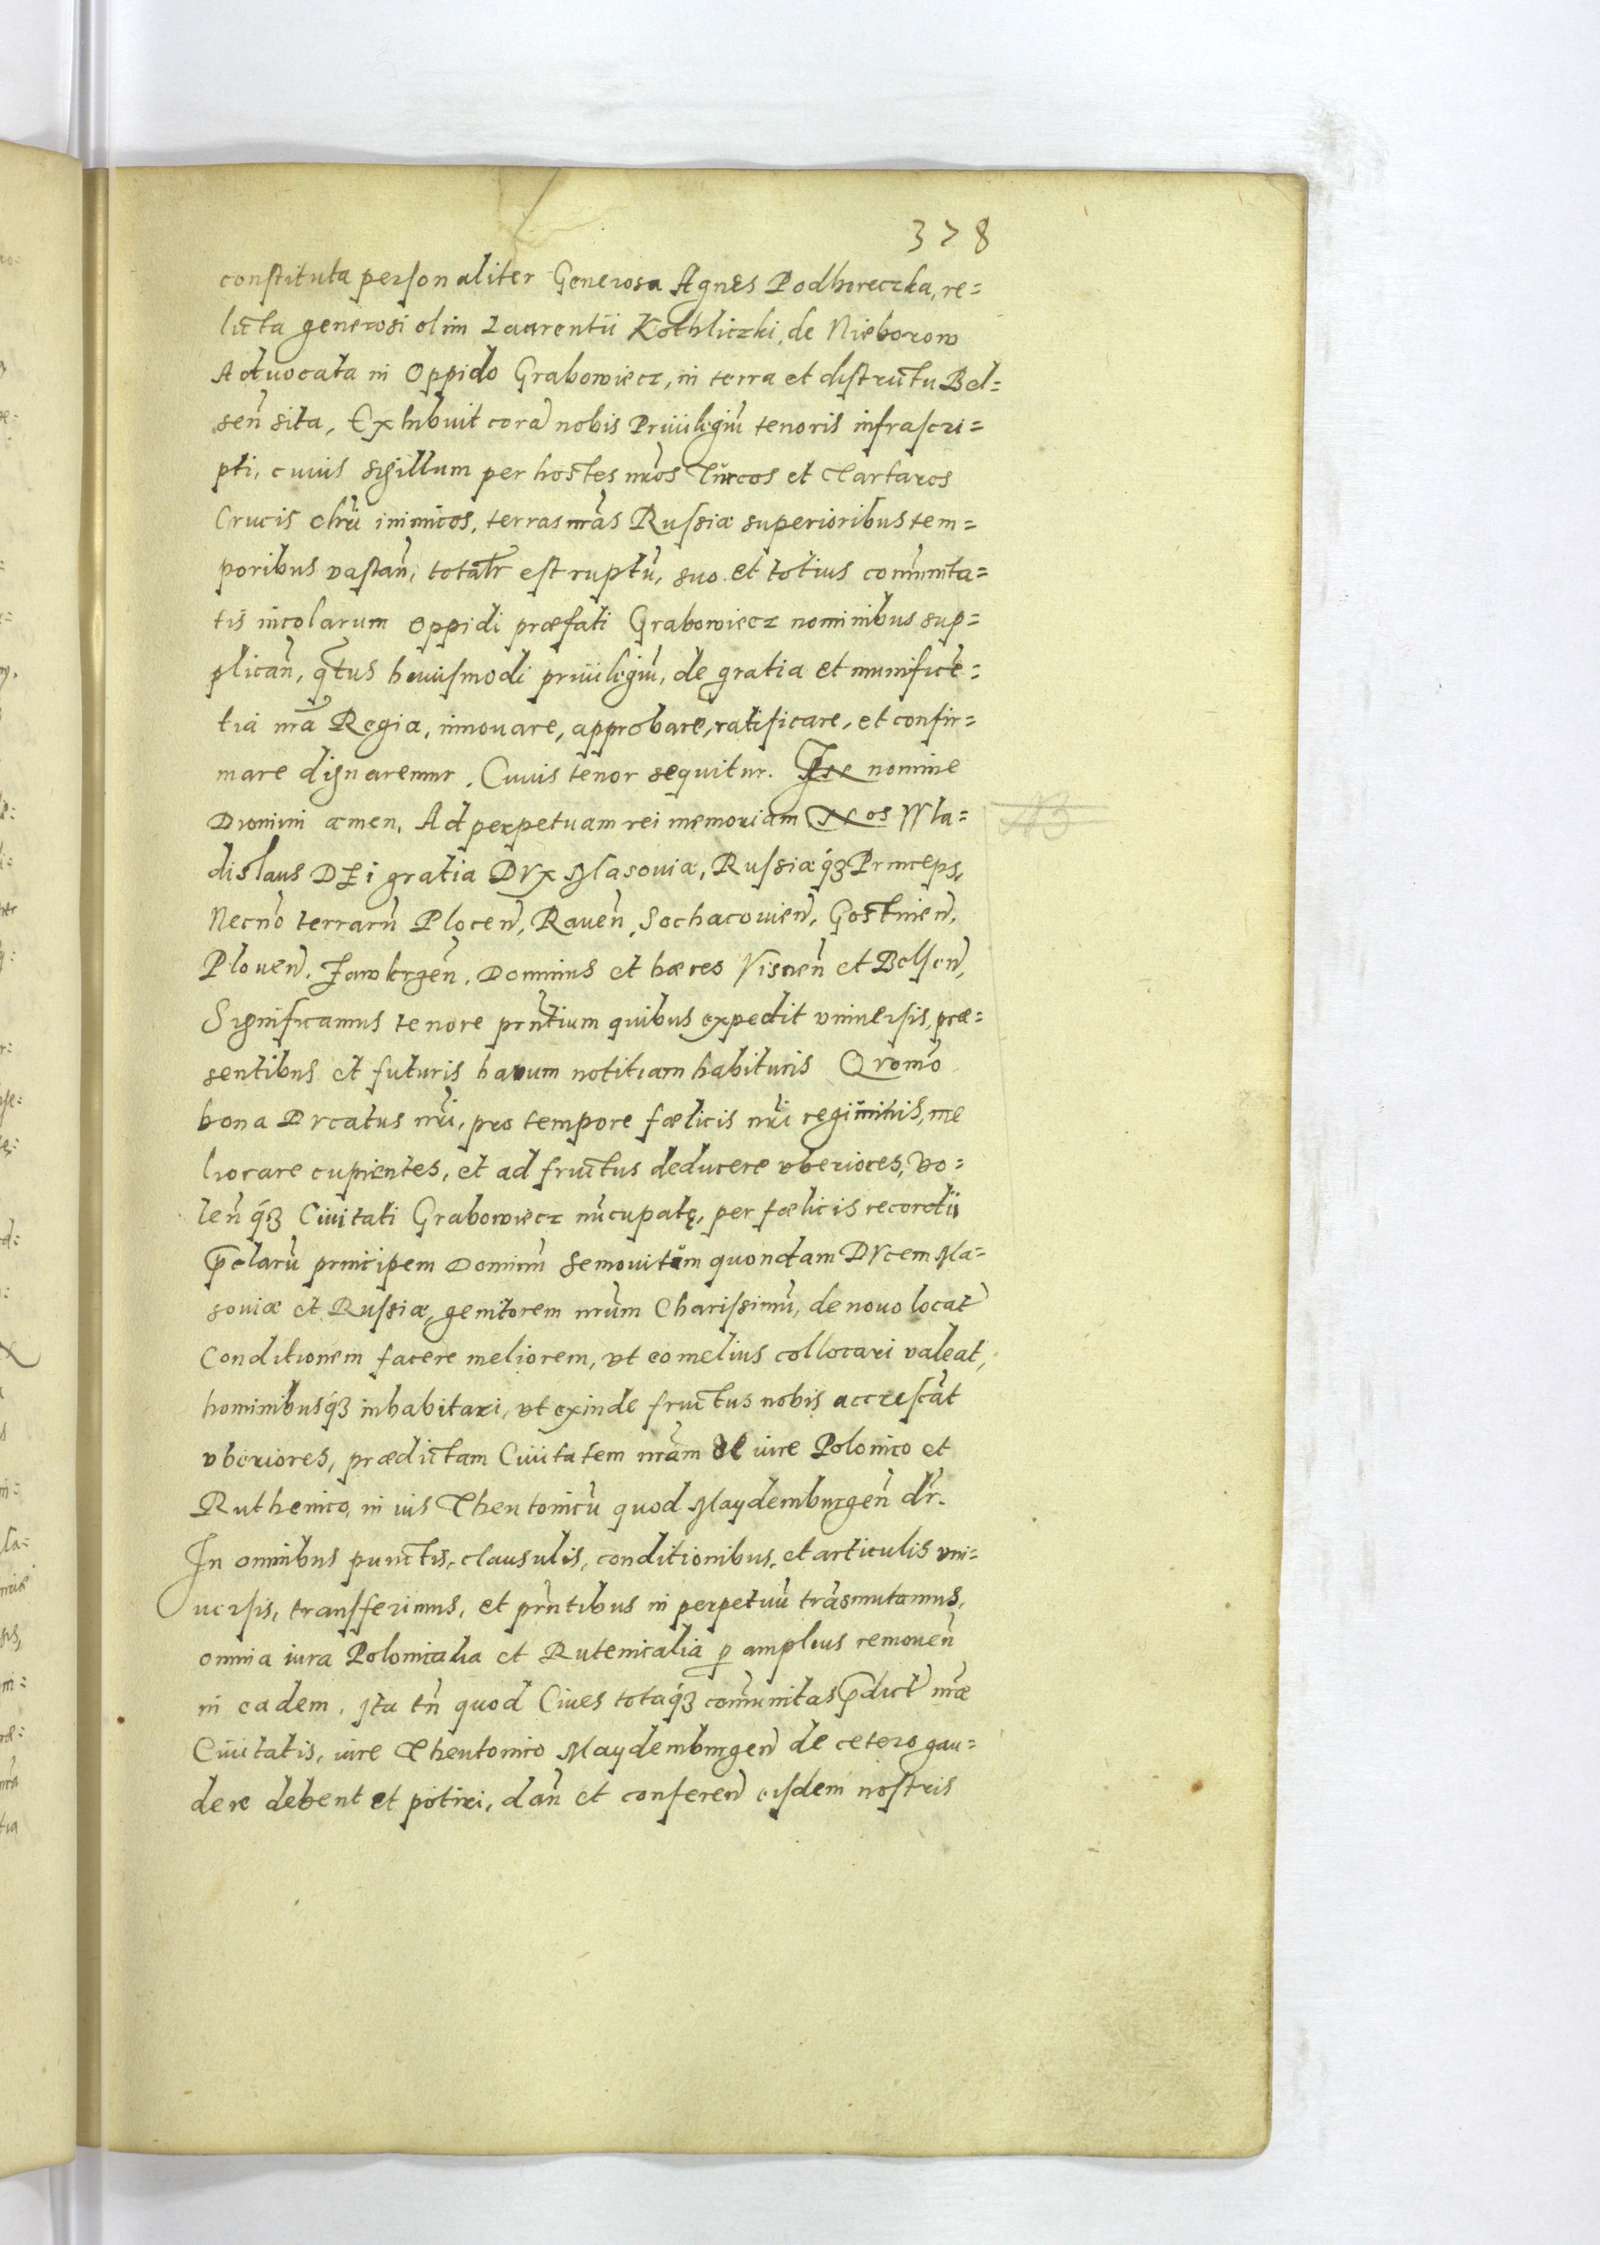 378
constituta personaliter Generosa Agnes Podhoreczka, re=
licta generosi olim Laurentii Kothliczki, de Nieborow
Aduocata in Oppido Grabowiecz, in terra et districtu Bel=
sen̄ sita, Exhibuit corā nobis Priuilegiū tenoris infrascri=
pti, cuius sigillum per hostes nr̄os Turcos et Tartaros
Crucis chr̄i inimicos, terras nr̄as Russiæ superioribus tem=
poribus vastan̄, totalr̄ est ruptū, suo et totius com̄unita=
tis incolarum oppidi præfati Grabowiecz nominibus sup=
plican̄, q̄tus huiusmodi priuilegiū, de gratia et munificē=
tia nr̄a Regia, innouare, approbare, ratificare, et confir=
mare dignaremur. Cuius tenor sequitur. In nomine
Domini amen, Ad perpetuam rei memoriam Nos Wla=
dislaus DEi gratia DVx Masouiæ, Russiæq́ꝫ Princeps,
Necnō terrarū Plocen̄, Rauen̄, Sochacouien̄, Gostinen̄,
Plouen̄. Dominus et hæres Visnen̄ et Belsen̄,
Significamus tenore prn̄tium quibus expedit vniuersis, præ=
sentibus et futuris harum notitiam habituris Quomō
bona DVcatus nr̄i, pro tempore fœlicis nr̄i regiminis, me
liorare cupientes, et ad fructus deducere vberiores, Vo=
len̄q́ꝫ Ciuitati Grabowiecz nūcupatę, per fœlicis recordii
p̄clarū principem Dominū Semouitum quondam DVcem Ma=
souiæ et Russiæ, genitorem nr̄um Charissimū, de nouo locat̄
Conditionem facere meliorem, vt eo melius collocari valeat,
hominibusq́ꝫ inhabitari, vt exinde fructus nobis accrescāt
vberiores, prædictam Ciuitatem nr̄am de iure Polonico et
Ruthenico, in ius Theutonicū quod Maydemburgen̄ dr̄.
In omnibus punctis, clausulis, conditionibus, et articulis vni=
uersis, transferimus, et prn̄tibus in perpetuū trāsmutamus,
omnia iura Polonicalia et Rutenicalia p amplius remouen̄
in eadem. Ita tn̄ quod Ciues totaq́ꝫ com̄unitas p̄dict̄ nr̄æ
Ciuitatis, iure Theutonico Maydemburgen̄ de cetero gau=
dere debent et potiri, dan̄ et conferen̄ eisdem nostris